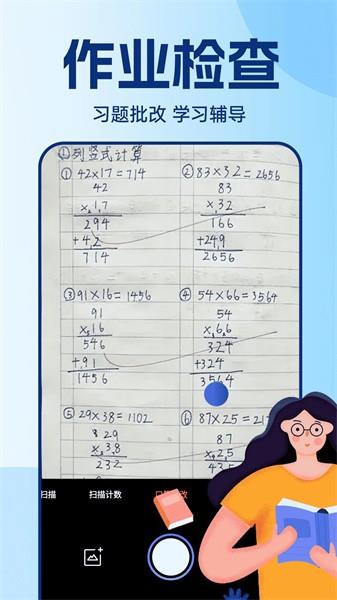 作业检查
习题批改 学习辅导
①列竖式计算
① 42×17=714
42
×1,7
294
+4,2
714
② 83×32=2656
83
×,32
166
+24,9
2656
③ 91×16=1456
91
×,16
546
+,91
1456
④ 54×66=3564
54
×,6,6
324
+324
3564
⑤ 29×38=1102
29
×,3,8
232
⑥ 87×25=21
87
×,2,5
435
扫描
扫描计数